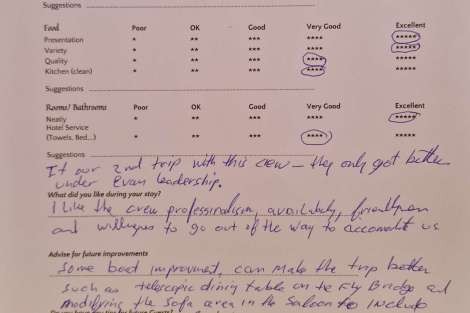 Suggestions
Food Poor OK Good Very Good Excellent
Presentation * ** *** **** *****
Variety * ** *** **** *****
Quality * ** *** **** *****
Kitchen (clean) * ** *** **** *****
Suggestions
Rooms/ Bathrooms Poor OK Good Very Good Excellent
Neatly * ** *** **** *****
Hotel Service
(Towels, Bed...) * ** *** **** *****
Suggestions
It our 2nd trip with this crew - they only got better
under Evan leadership.
What did you like during your stay?
I like the crew professionalism, availability, friendlyness
and willingness to go out of the way to us
Advise for future improvements
Some boat improvment, can make the trip better
such as telescopic dining table on the Fly Bridge and
modifying the sofa area in the Saloon to Include